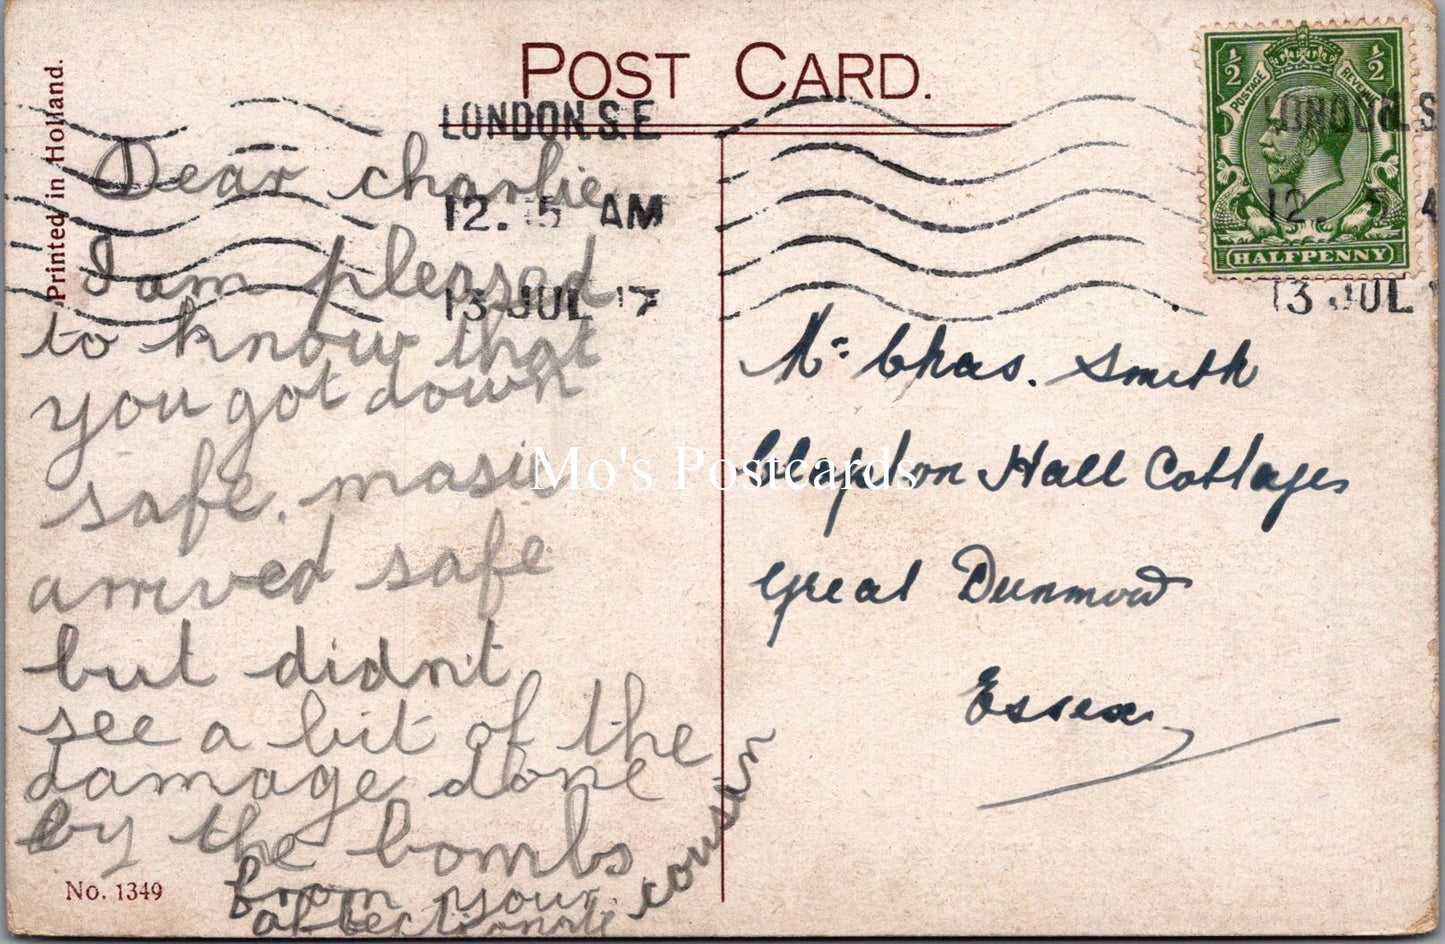 POST CARD.
Printed in Holland.
LONDON.S.E
12.15 AM
13 JUL 17
LONDON.S
12. 5 A
13 JUL 1
½ ½
POSTAGE REVENUE
HALFPENNY
Dear charlie
I am pleased
to know that
you got down
safe. masie
arrived safe
but didn't
see a bit of the
damage done
by the bombs
from your
affectionate cousin
No. 1349
Mr. Chas. Smith
Clapton Hall Cottages
Great Dunmow
Essex
Mo's Postcards